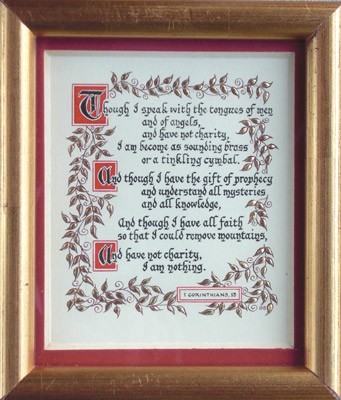 Though I speak with the tongues of men
and of angels,
and have not charity,
I am become as sounding brass
or a tinkling cymbal.
And though I have the gift of prophecy
and understand all mysteries
and all knowledge,
And though I have all faith
so that I could remove mountains,
And have not charity,
I am nothing.
1 CORINTHIANS, 13